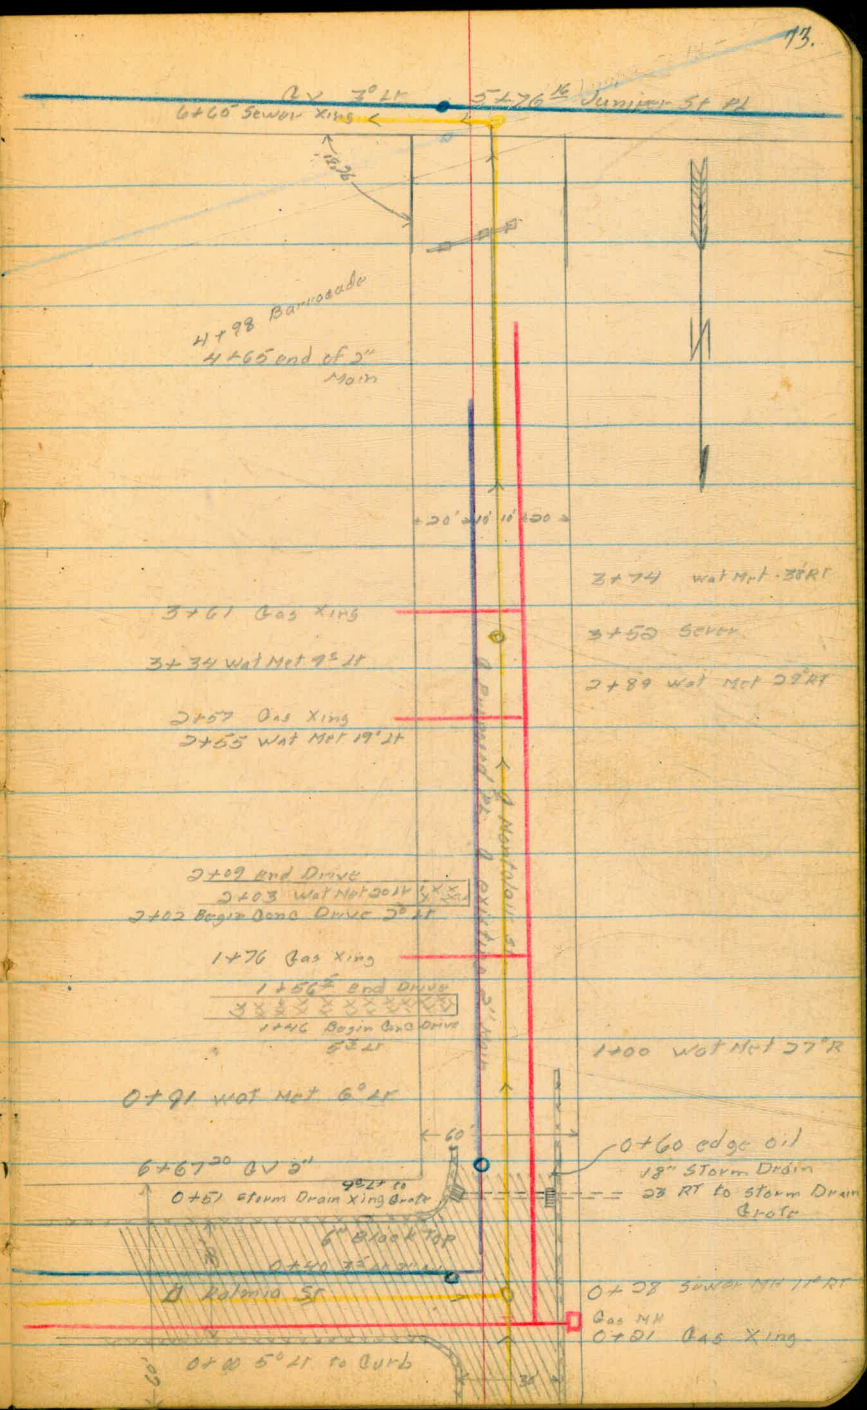 73.
GV 3° Lt 5+76 16 Juniper St PL
6+65 Sewer Xing
4+98 Barrocade
4+65 end of 2"
Main
20' 10' 10' 20
3+74 Wat Met 38 RT
3+61 Gas Xing
3+52 Sewer
3+34 Wat Met 9⁵ Lt
2+89 Wat Met 29° RT
2+57 Gas Xing
2+55 Wat Met 19° Lt
Montclair St
existing 2" Main
2+09 End Drive
2+03 Wat Met 20 Lt
2+02 Begin Conc Drive 2° Lt
1+76 Gas Xing
1+56⁵ End Drive
1+46 Begin Conc Drive
Lt
1+00 Wat Met 27° R
0+91 Wat Met 6° Lt
60'
0+60 edge oil
6+67 20 GV 2"
18" Storm Drain
0+51 Storm Drain Xing Grate
23 RT to Storm Drain
Grate
6" Black Top
0+40
Kalmia St
0+28 Sewer MH 11° RT
Gas MH
0+21 Gas Xing
0+00 5° Lt to Curb